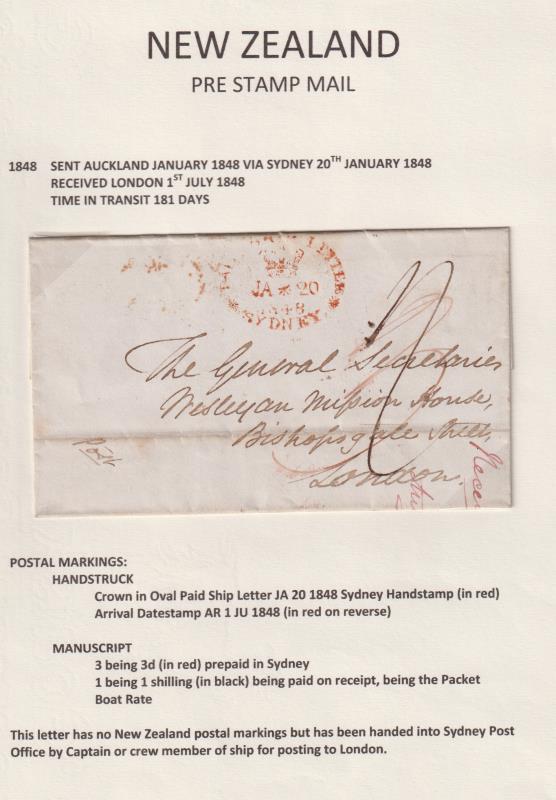 NEW ZEALAND
PRE STAMP MAIL
1848 SENT AUCKLAND JANUARY 1848 VIA SYDNEY 20TH JANUARY 1848
RECEIVED LONDON 1ST JULY 1848
TIME IN TRANSIT 181 DAYS
SHIP LETTER
JA 20
1848
SYDNEY
The General Secretaries
Wesleyan Mission House,
Bishopsgate Street,
London.
POSTAL MARKINGS:
HANDSTRUCK
Crown in Oval Paid Ship Letter JA 20 1848 Sydney Handstamp (in red)
Arrival Datestamp AR 1 JU 1848 (in red on reverse)
MANUSCRIPT
3 being 3d (in red) prepaid in Sydney
1 being 1 shilling (in black) being paid on receipt, being the Packet
Boat Rate
This letter has no New Zealand postal markings but has been handed into Sydney Post
Office by Captain or crew member of ship for posting to London.